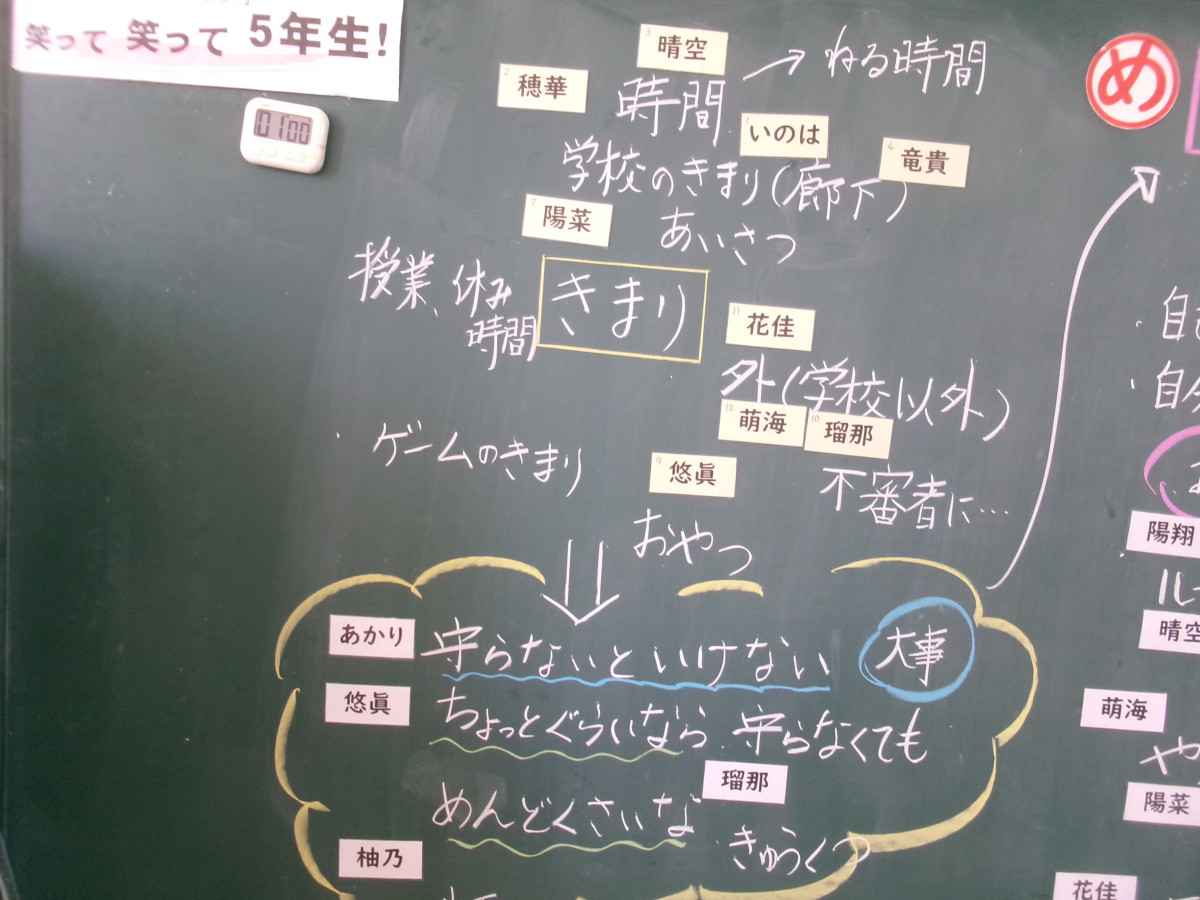 笑って 笑って 5年生!
01 00
3 晴空
時間 → ねる時間
め
2 穂華
1 いのは
学校のきまり(廊下)
4 竜貴
7 陽菜
あいさつ
授業、休み
時間
きまり
11 花佳
外(学校以外)
12 萌海
10 瑠那
不審者に…
・ゲームのきまり
9 悠眞
おやつ
・自
・自分
あかり
守らないといけない
大事
悠眞
ちょっとぐらいなら 守らなくても
瑠那
めんどくさいな
きゅうくつ
柚乃
陽翔
ル
晴空
萌海
や
陽菜
花佳